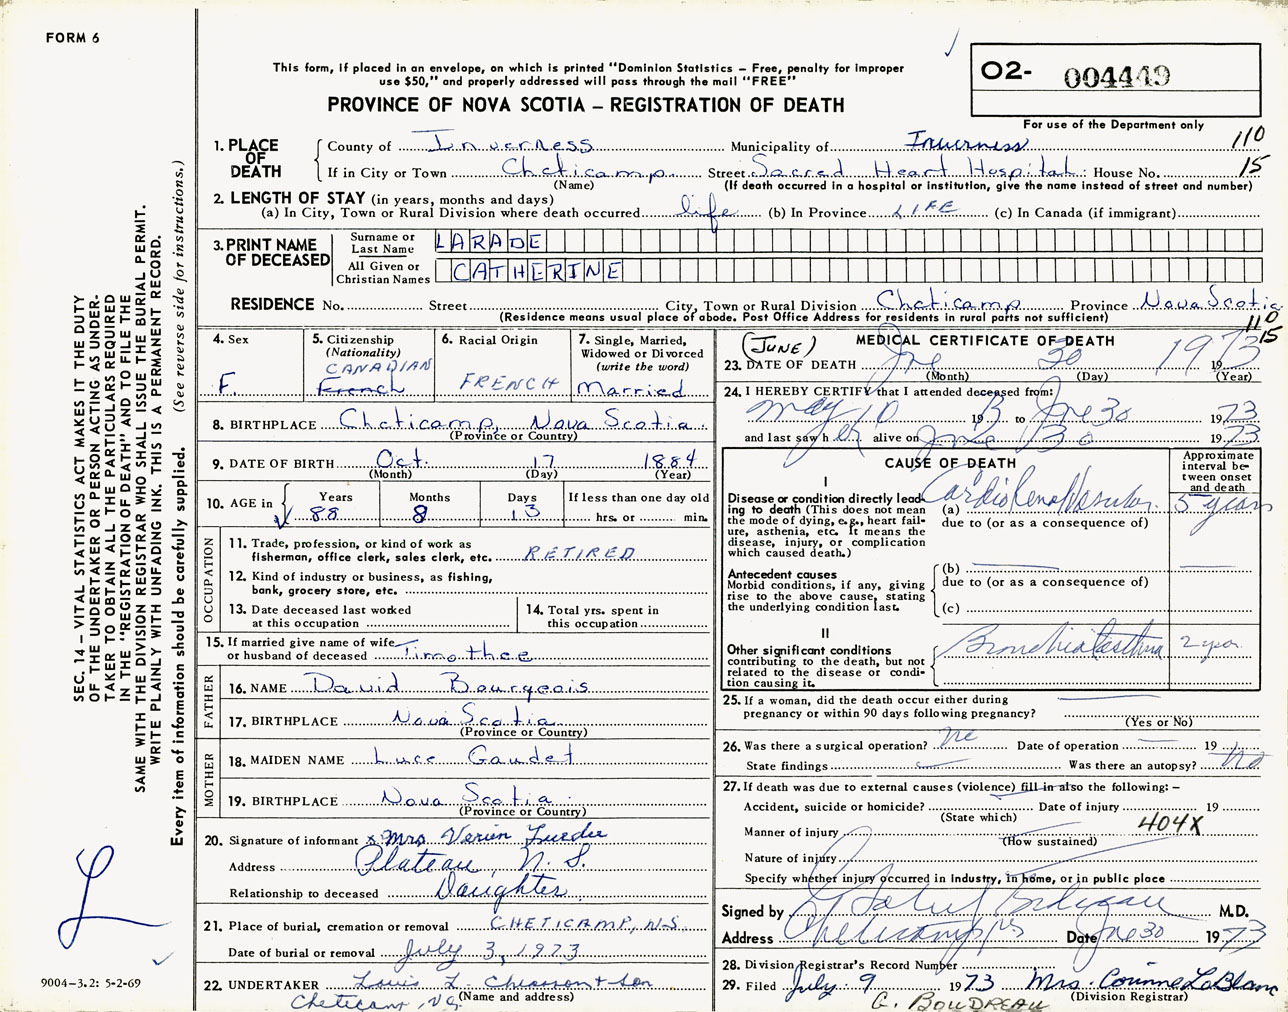 FORM 6
This form, if placed in an envelope, on which is printed "Dominion Statistics – Free, penalty for improper
use $50," and properly addressed will pass through the mail "FREE"
PROVINCE OF NOVA SCOTIA – REGISTRATION OF DEATH
02- 004449
For use of the Department only
110
15
1. PLACE OF DEATH
County of Inverness Municipality of Inverness
If in City or Town Cheticamp Street Sacred Heart Hospital House No.
(Name) (If death occurred in a hospital or institution, give the name instead of street and number)
2. LENGTH OF STAY (in years, months and days)
(a) In City, Town or Rural Division where death occurred life (b) In Province LIFE (c) In Canada (if immigrant)
3. PRINT NAME OF DECEASED
Surname or Last Name LARADE
All Given or Christian Names CATHERINE
RESIDENCE No. Street City, Town or Rural Division Cheticamp Province Nova Scotia
(Residence means usual place of abode. Post Office Address for residents in rural parts not sufficient)
110
15
4. Sex
F.
5. Citizenship
(Nationality)
CANADIAN
French
6. Racial Origin
FRENCH
7. Single, Married,
Widowed or Divorced
(write the word)
Married
8. BIRTHPLACE Cheticamp, Nova Scotia
(Province or Country)
9. DATE OF BIRTH Oct. 17 1884
(Month) (Day) (Year)
10. AGE in
Years Months Days If less than one day old
88 8 13 hrs. or min.
OCCUPATION
11. Trade, profession, or kind of work as
fisherman, office clerk, sales clerk, etc. RETIRED
12. Kind of industry or business, as fishing,
bank, grocery store, etc.
13. Date deceased last worked
at this occupation
14. Total yrs. spent in
this occupation
15. If married give name of wife
or husband of deceased Timothee
FATHER
16. NAME David Bourgeois
17. BIRTHPLACE Nova Scotia
(Province or Country)
MOTHER
18. MAIDEN NAME Luce Gaudet
19. BIRTHPLACE Nova Scotia
(Province or Country)
20. Signature of informant x Mrs
Address Plateau, N. S.
Relationship to deceased Daughter
21. Place of burial, cremation or removal CHETICAMP, N.S.
Date of burial or removal July 3, 1973
22. UNDERTAKER Louis L. Chiasson + son
(Name and address)
Cheticamp, N.S.
MEDICAL CERTIFICATE OF DEATH
(JUNE)
23. DATE OF DEATH Jne 30 1973
19
(Month) (Day) (Year)
24. I HEREBY CERTIFY that I attended deceased from:
May 10 19 to Jne 30 1973
and last saw her alive on Jne 30 1973
CAUSE OF DEATH
Approximate
interval be-
tween onset
and death
I
Disease or condition directly lead-
ing to death (This does not mean
the mode of dying, e.g., heart fail-
ure, asthenia, etc. It means the
disease, injury, or complication
which caused death.)
(a) CardioRenoVascular 5 years
due to (or as a consequence of)
Antecedent causes
Morbid conditions, if any, giving
rise to the above cause, stating
the underlying condition last.
(b)
due to (or as a consequence of)
(c)
II
Other significant conditions
contributing to the death, but not
related to the disease or condi-
tion causing it.
Bronchial asthma 2 year
25. If a woman, did the death occur either during
pregnancy or within 90 days following pregnancy?
(Yes or No)
26. Was there a surgical operation? no Date of operation 19
State findings Was there an autopsy? no
27. If death was due to external causes (violence) fill in also the following: –
Accident, suicide or homicide? Date of injury 19
(State which)
404X
Manner of injury
(How sustained)
Nature of injury
Specify whether injury occurred in industry, in home, or in public place
Signed by M.D.
Address Cheticamp NS Date Jne 30 1973
28. Division Registrar's Record Number
29. Filed July 9 1973 Mrs. Corinne LeBlanc
(Division Registrar)
G. BOUDREAU
SEC. 14 – VITAL STATISTICS ACT MAKES IT THE DUTY
OF THE UNDERTAKER OR PERSON ACTING AS UNDER-
TAKER TO OBTAIN ALL THE PARTICULARS REQUIRED
IN THE "REGISTRATION OF DEATH" AND TO FILE THE
SAME WITH THE DIVISION REGISTRAR WHO SHALL ISSUE THE BURIAL PERMIT.
WRITE PLAINLY WITH UNFADING INK. THIS IS A PERMANENT RECORD.
Every item of information should be carefully supplied. (See reverse side for instructions.)
L
9004-3.2: 5-2-69